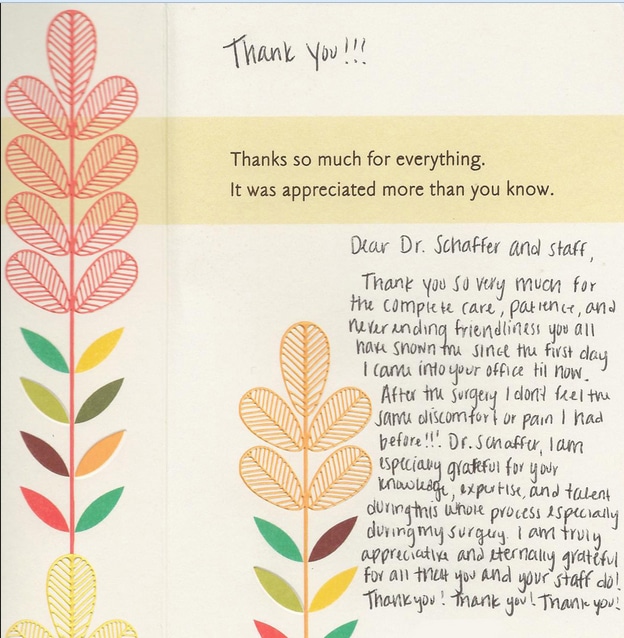 Thank you!!!
Thanks so much for everything.
It was appreciated more than you know.
Dear Dr. Schaffer and staff,
Thank you so very much for
the complete care, patience, and
never ending friendliness you all
have shown me since the first day
I came into your office til now.
After the surgery I don't feel the
same discomfort or pain I had
before!!! Dr. Schaffer, I am
especially grateful for your
knowledge, expertise, and talent
during this whole process especially
during my surgery. I am truly
appreciative and eternally grateful
for all that you and your staff do!
Thank you! Thank you! Thank you!